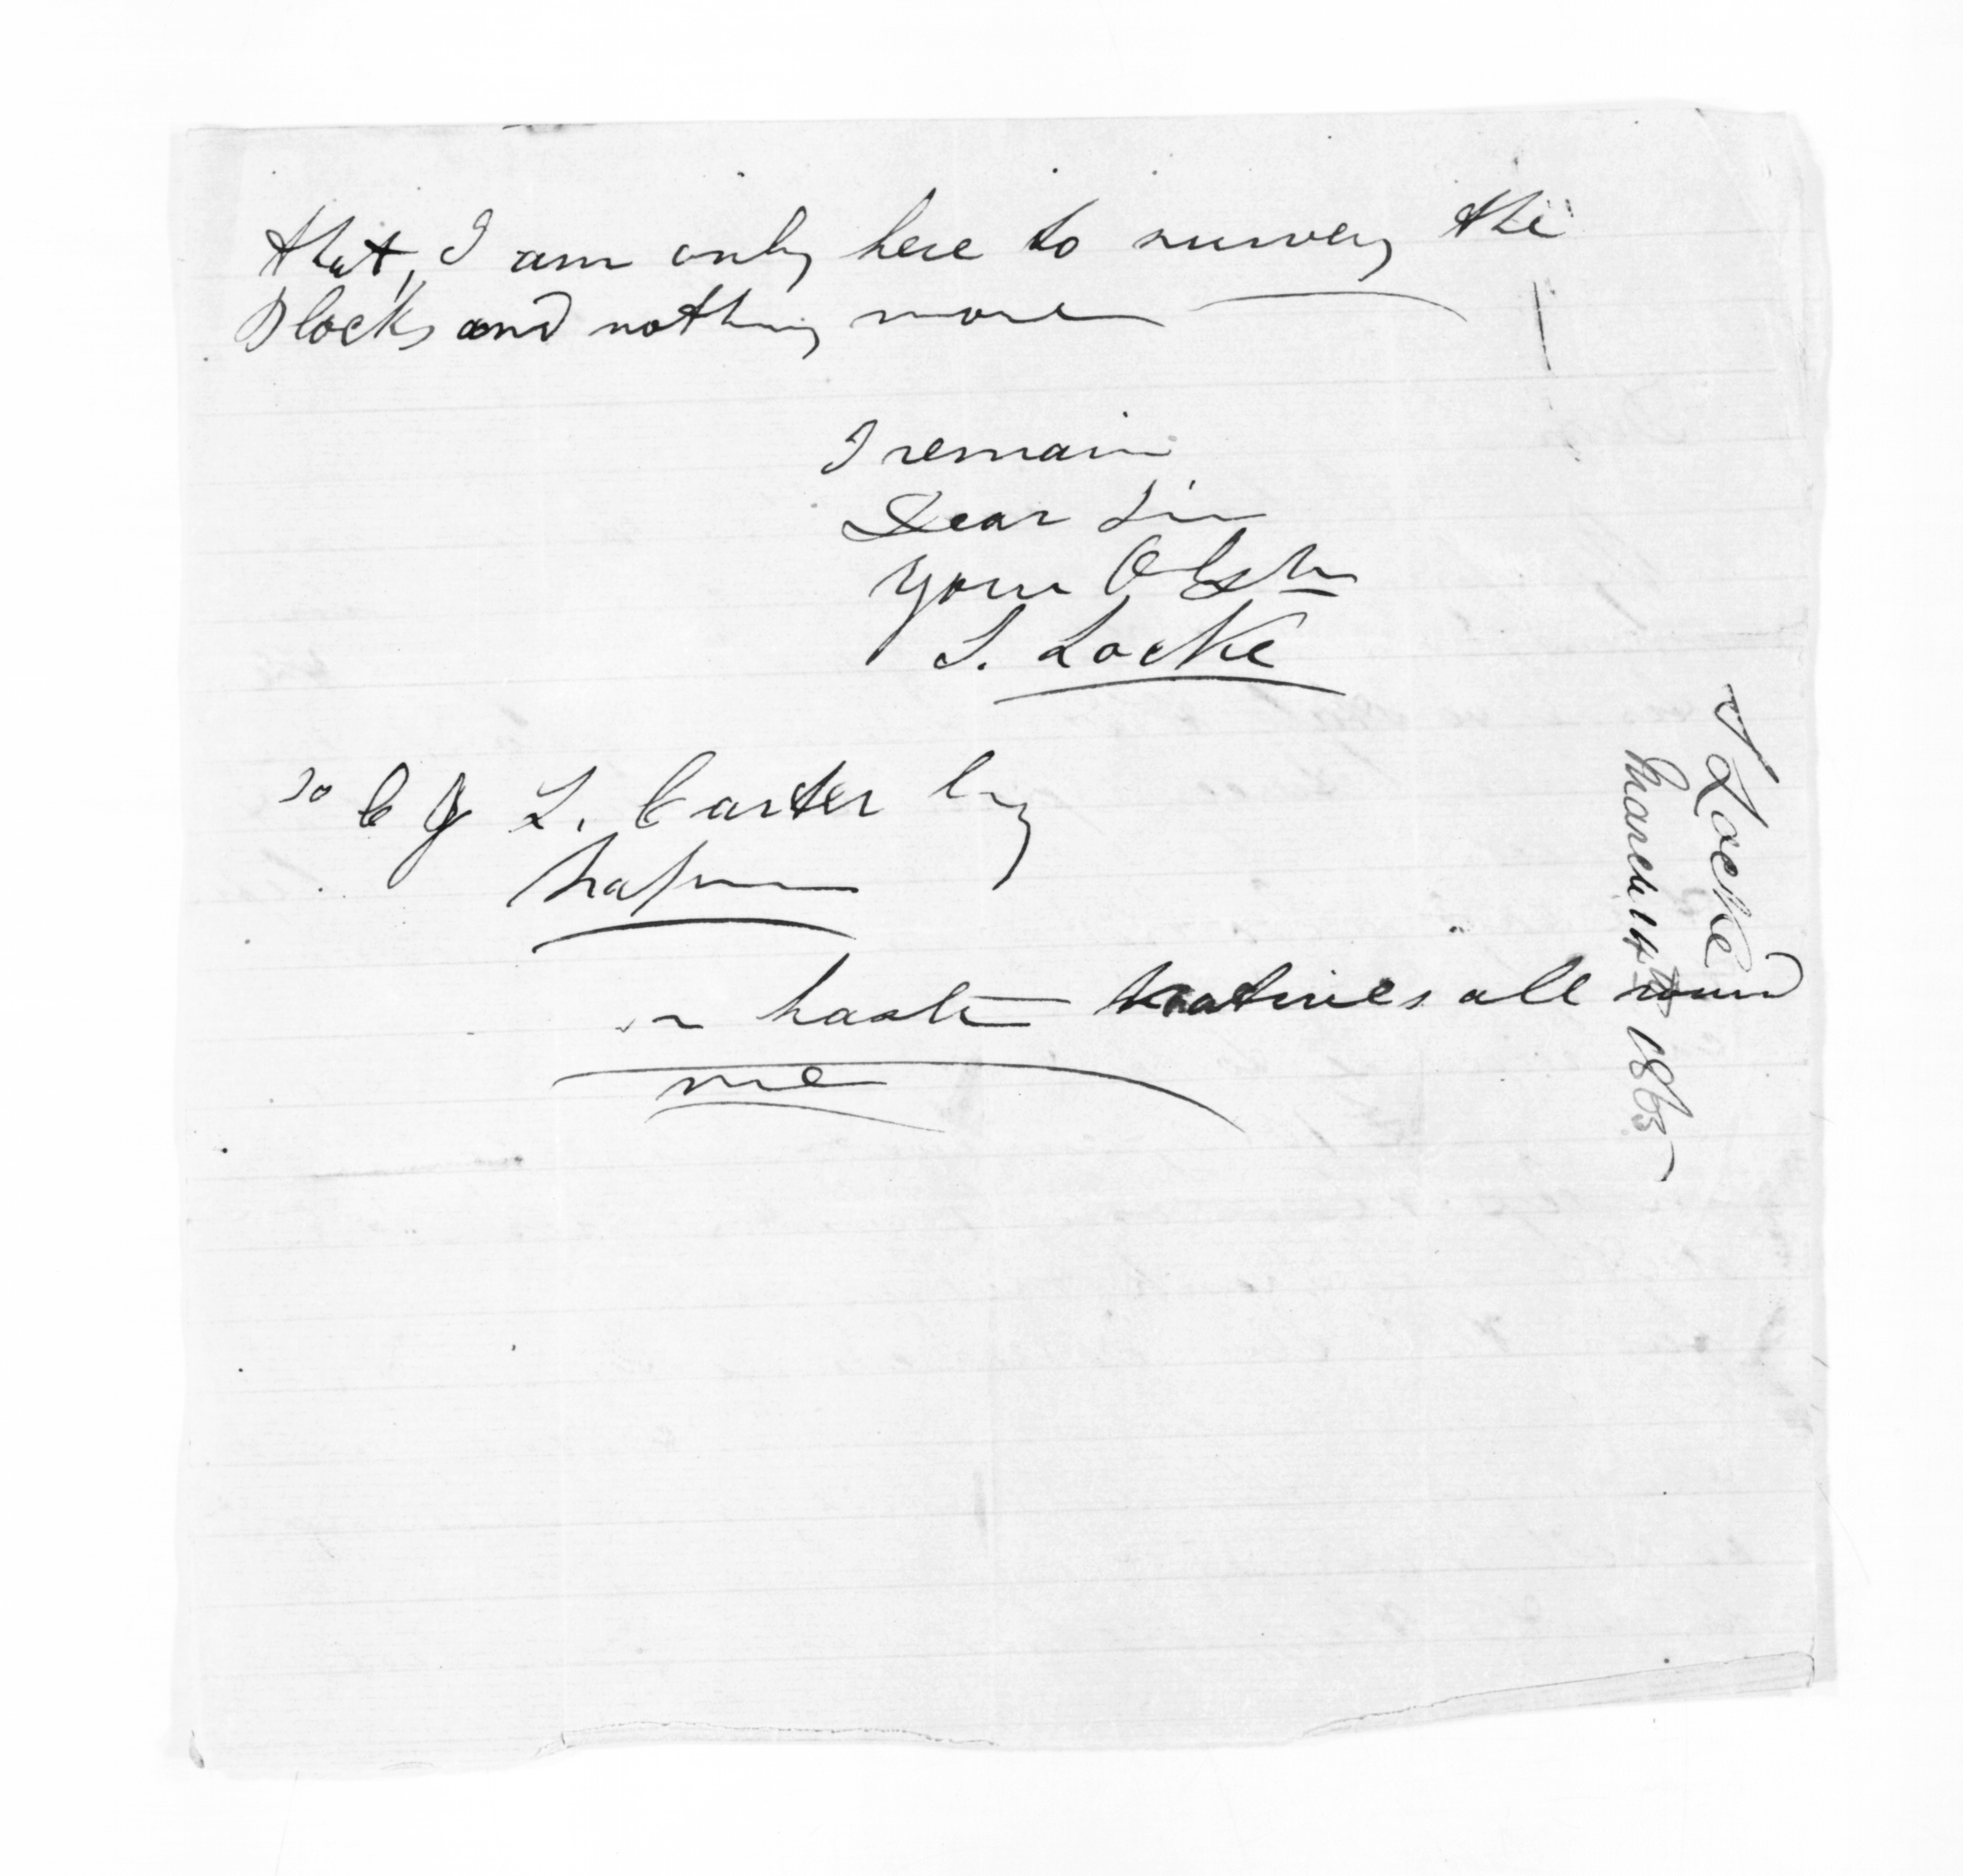 that, I am only here to survey the
Blocks and nothing more
I remain
Dear Sir
your Obdt
S. Locke
To C J L. Carter Esq
Napier
in haste natives all round
me
S Locke
March 14th 1865